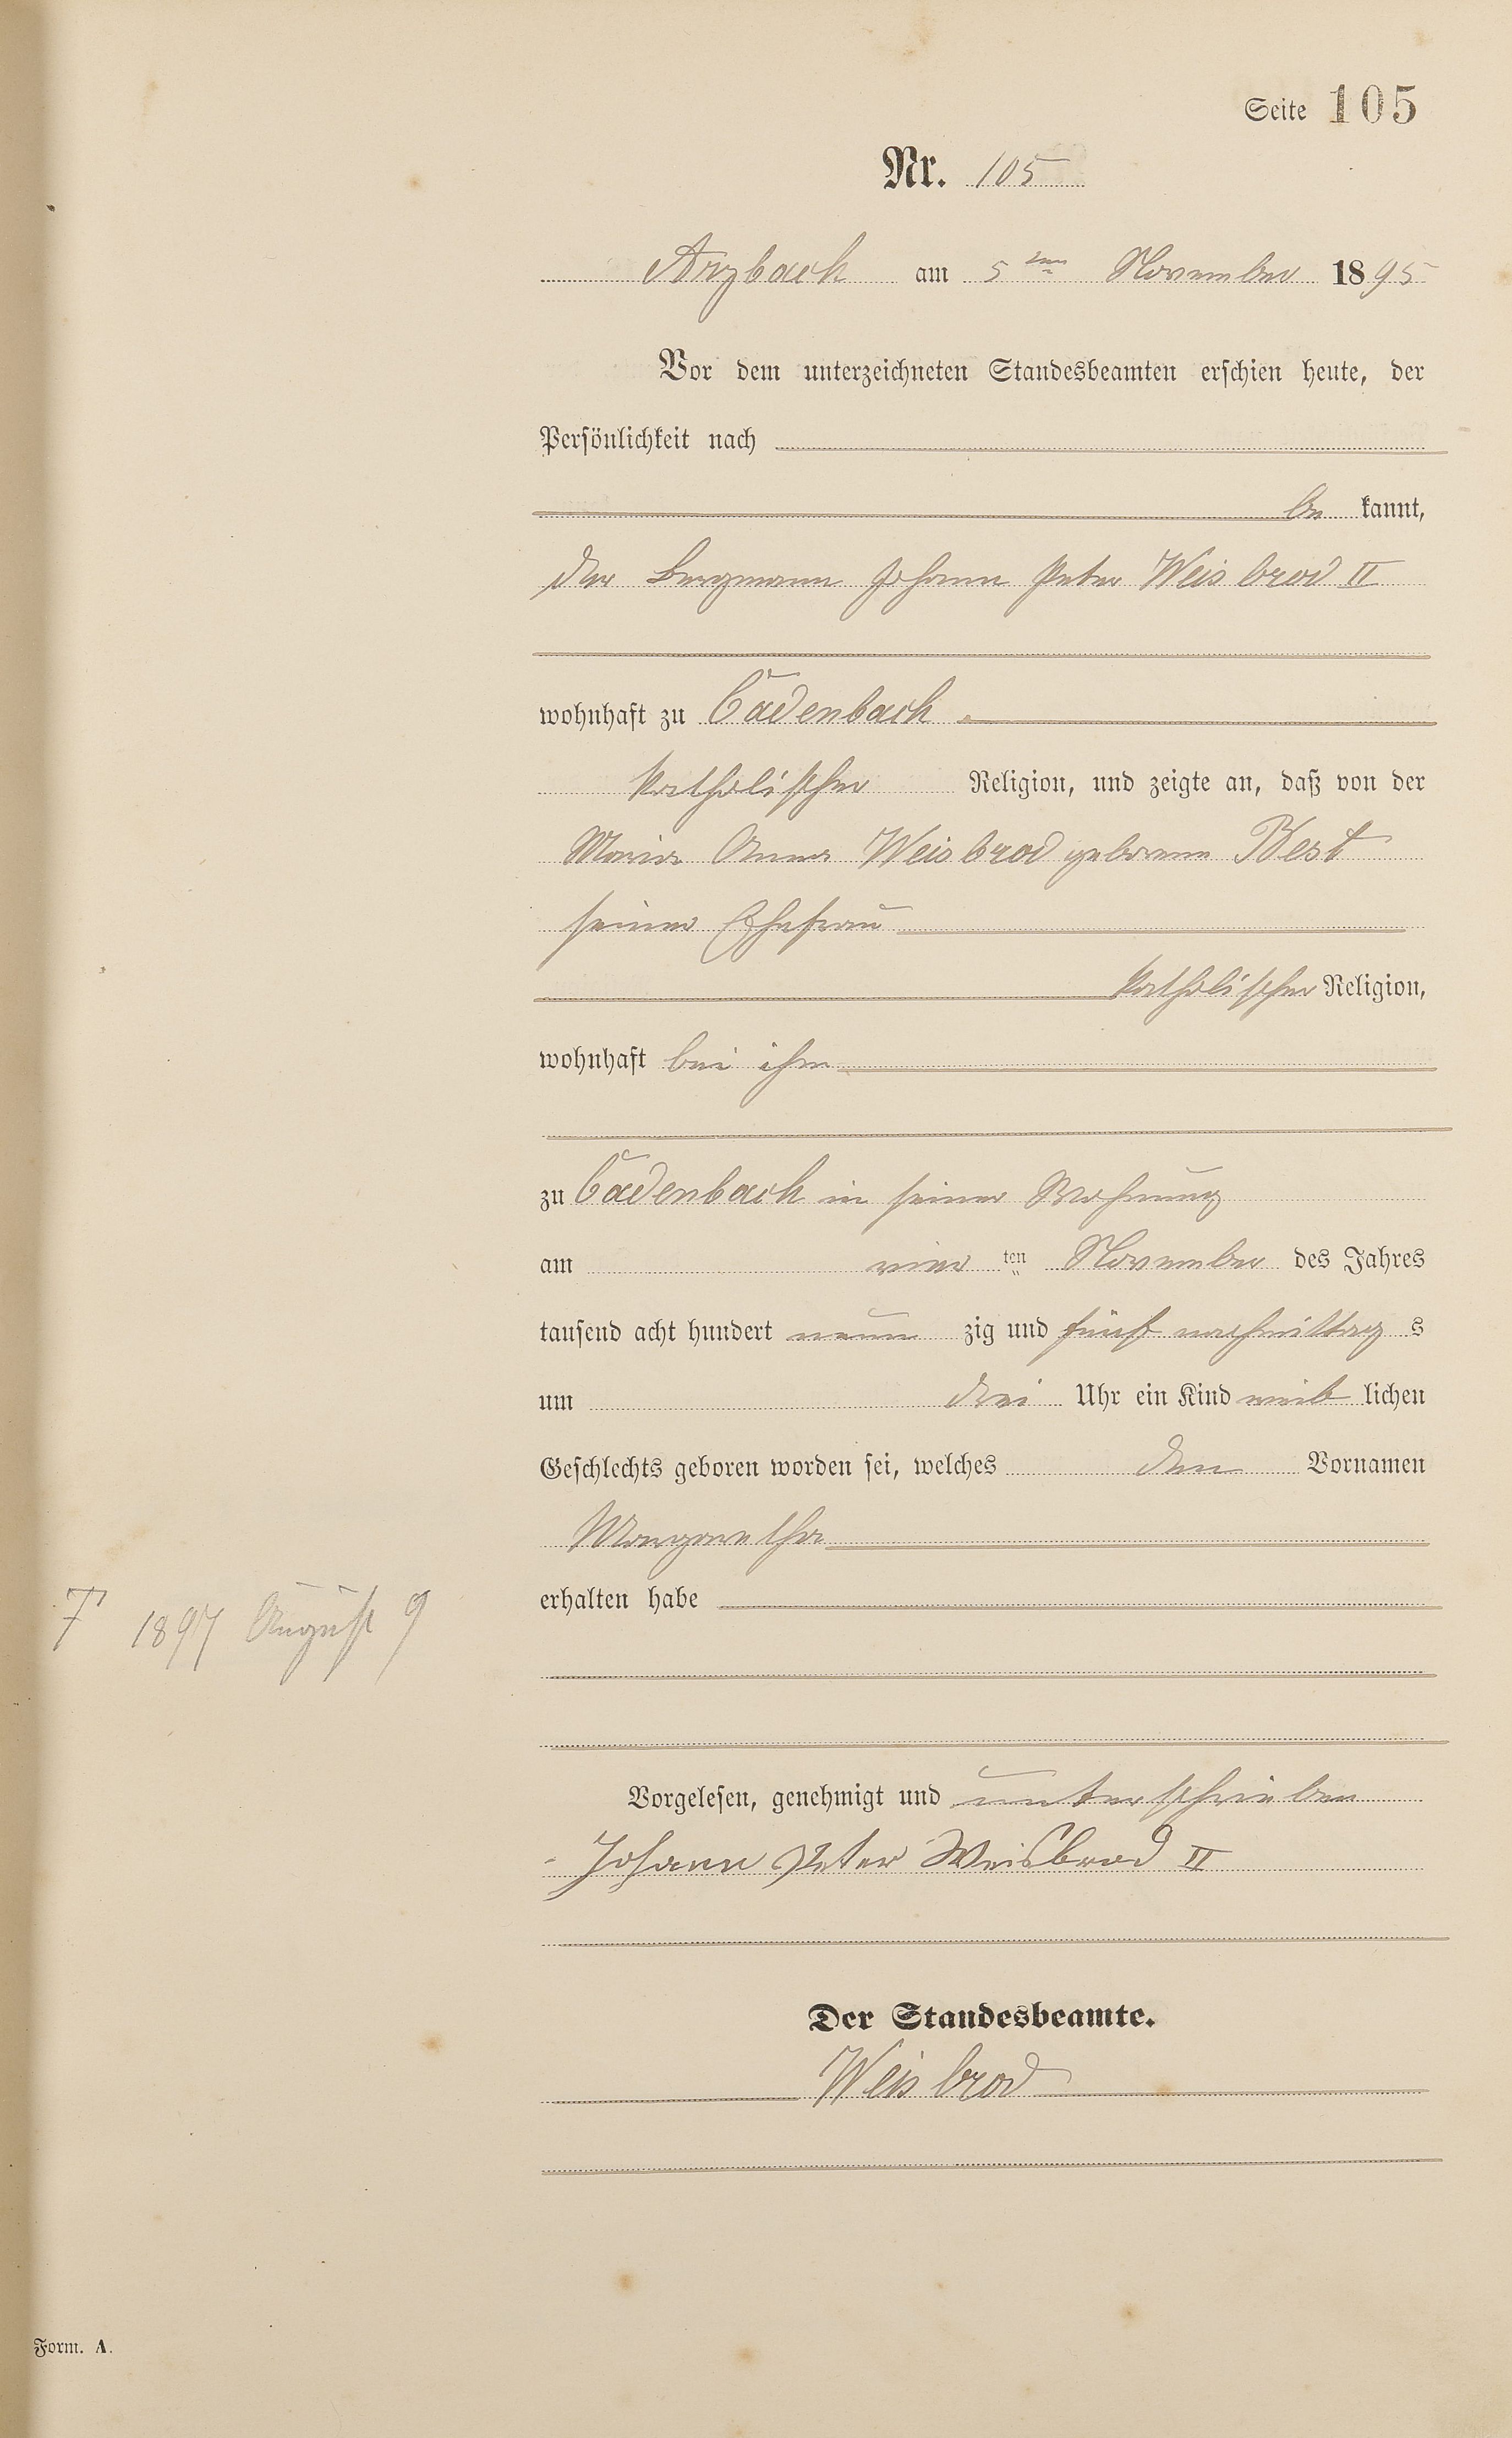 Seite 105
Nr. 105
Arzbach am 5ten November 1895
Vor dem unterzeichneten Standesbeamten erschien heute, der
Persönlichkeit nach
be kannt,
der Bergmann Johann Peter Weisbrod II
wohnhaft zu Cadenbach
katholischer Religion, und zeigte an, daß von der
Maria Anna Weisbrod geborene Best
seiner Ehefrau
katholischer Religion,
wohnhaft bei ihm
zu Cadenbach in seiner Wohnung
am vier ten November des Jahres
tausend acht hundert neun zig und fünf nachmittag s
um drei Uhr ein Kind weib lichen
Geschlechts geboren worden sei, welches den Vornamen
Margaretha
erhalten habe
† 1897 August 9
Vorgelesen, genehmigt und unterschrieben
Johann Peter Weisbrod II
Der Standesbeamte.
Weisbrod
Form. A.